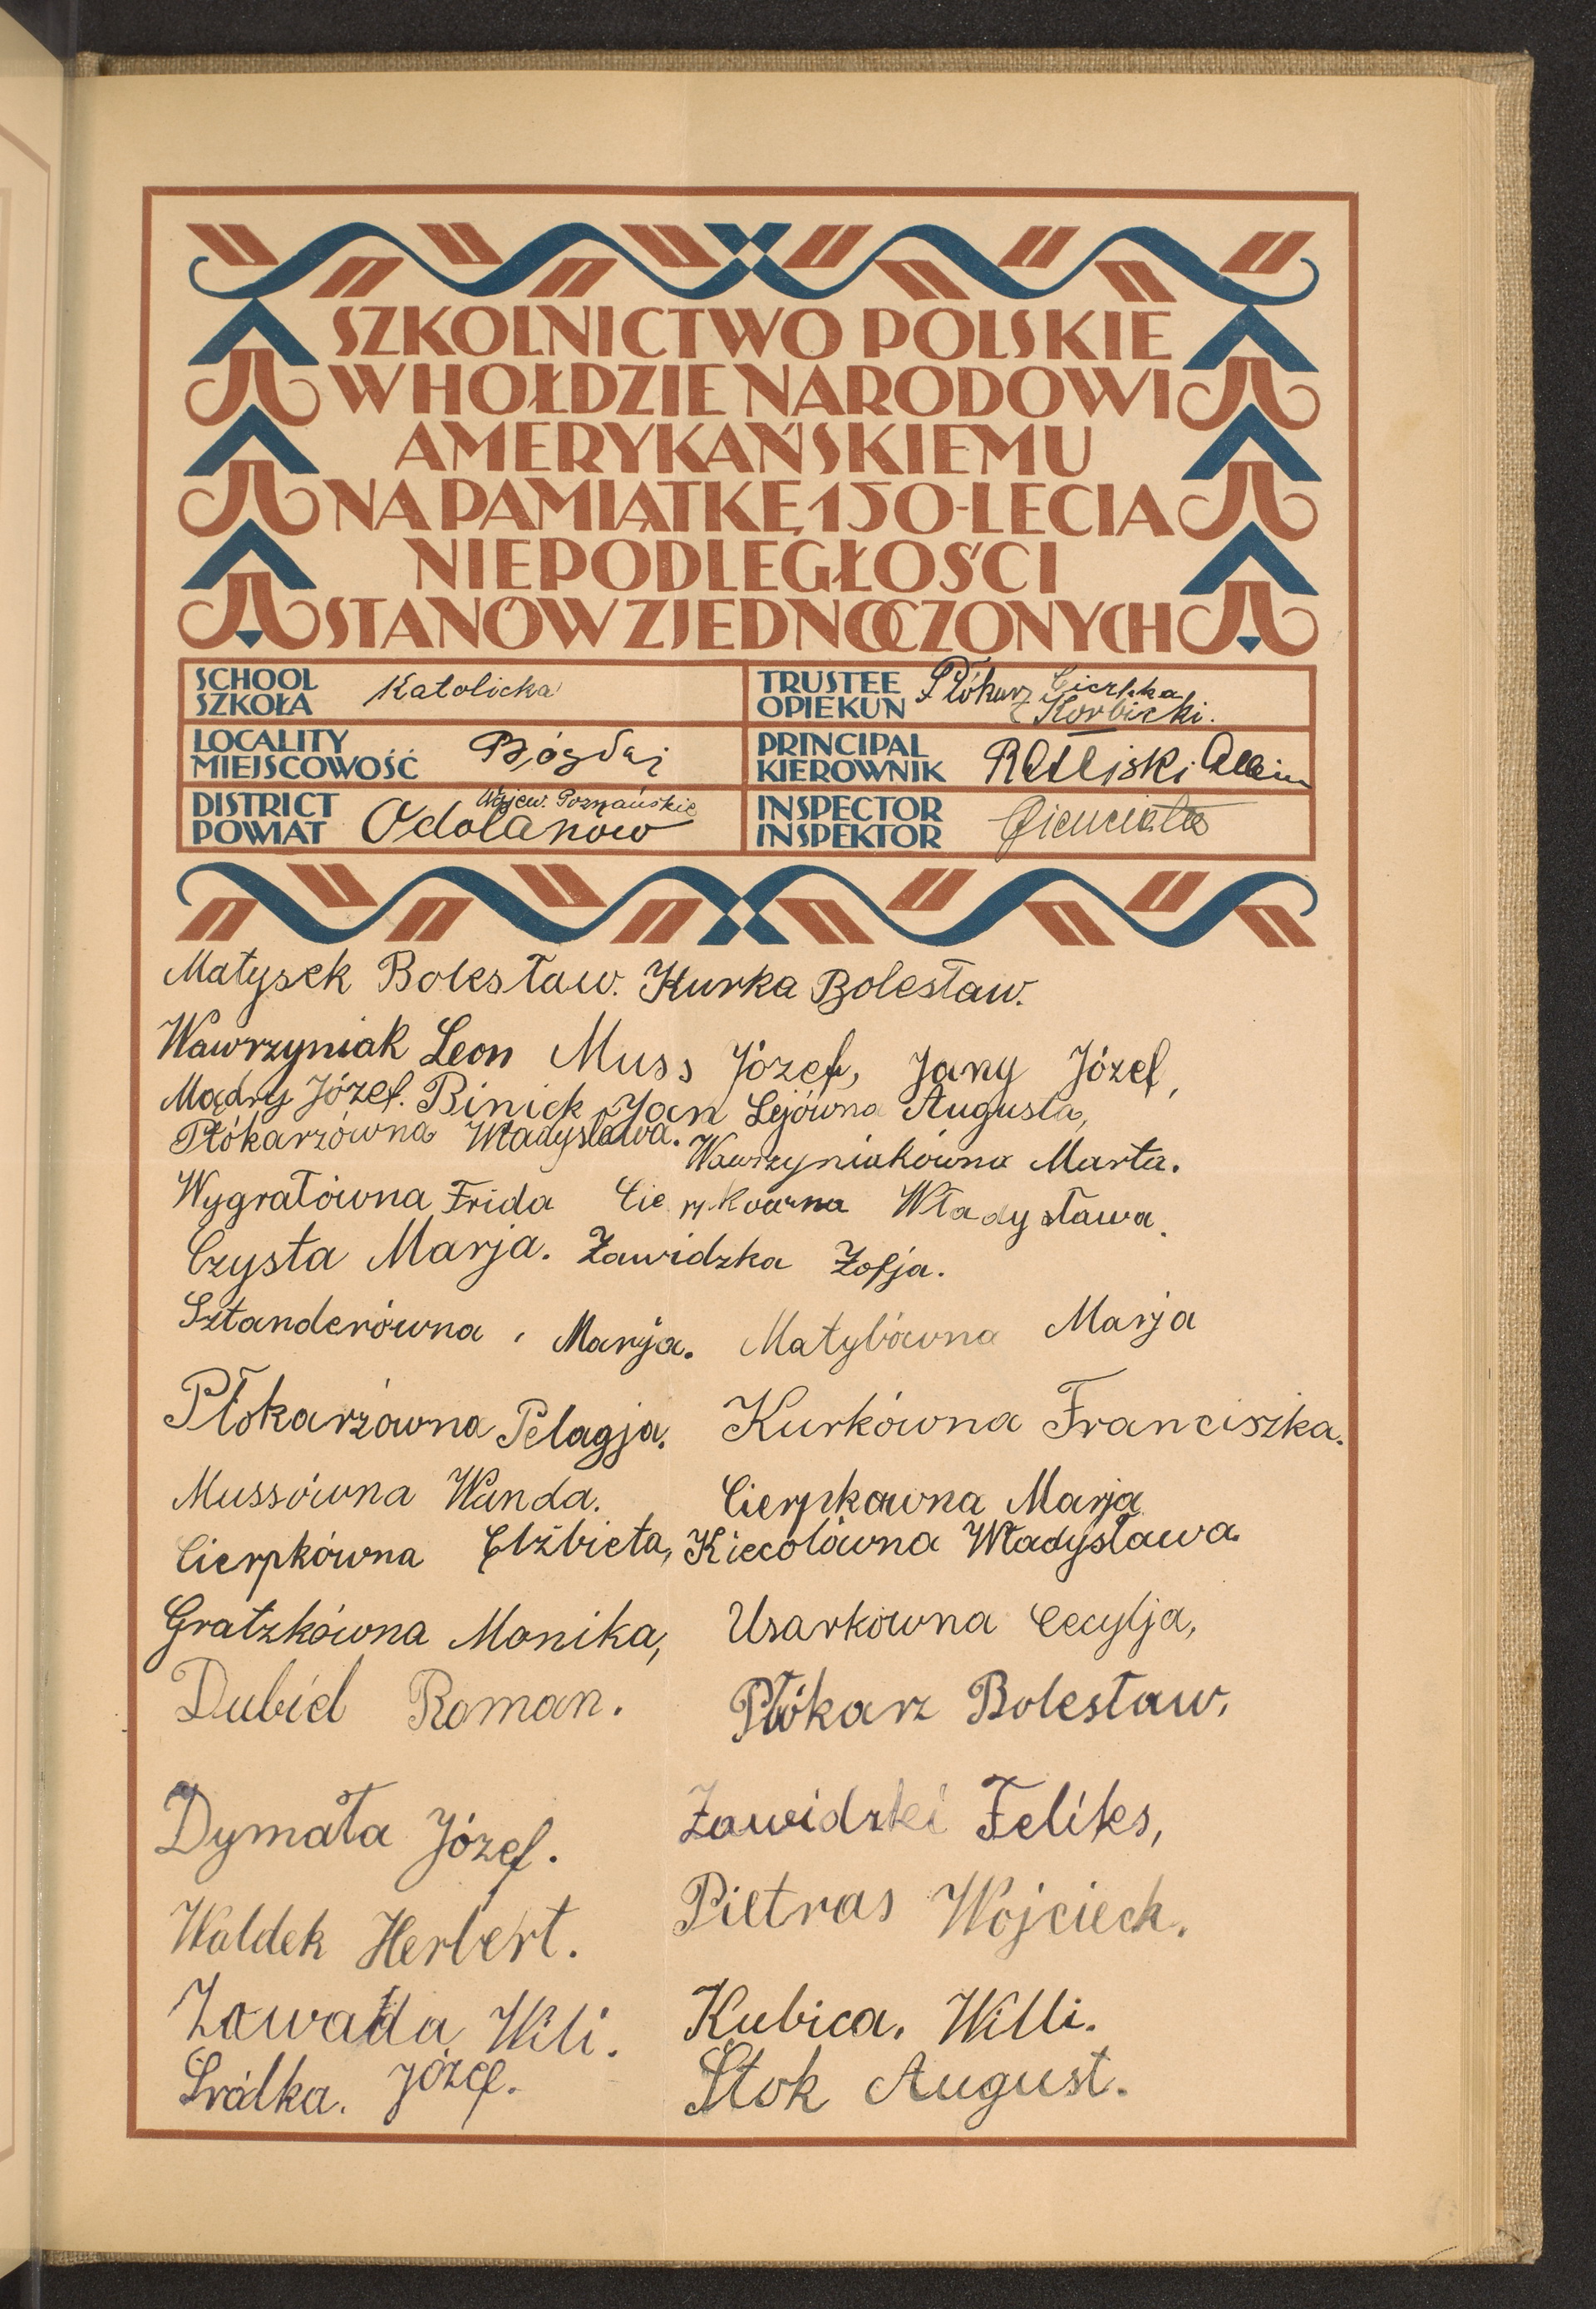 SZKOLNICTWO POLSKIE
W HOŁDZIE NARODOWI
AMERYKAŃSKIEMU
NA PAMIĄTKĘ 150-LECIA
NIEPODLEGŁOŚCI
STANÓW ZJEDNOCZONYCH
SCHOOL
SZKOŁA Katolicka
TRUSTEE
OPIEKUN Płókarz Cierpka
Korbicki.
LOCALITY
MIEJSCOWOŚĆ Bógdaj
PRINCIPAL
KIEROWNIK
DISTRICT
POWIAT Odolanow
Wojew. Poznańskie
INSPECTOR
INSPEKTOR
Matysek Bolesław. Kurka Bolesław.
Wawrzyniak Leon Muss Józef, Jany Józef,
Mądry Józef. Biniek Jan Lejówna Augusta,
Płókarzówna Władysława. Wawrzyniakówna Marta.
Wygrałówna Frida Cierpkówna Władysława.
Czysta Marja. Zawidzka Zofja.
Sztanderówna, Marja. Matylówna Marja
Płókarzówna Pelagja. Kurkówna Franciszka.
Mussówna Wanda. Cierpkówna Marja
Cierpkówna Elżbieta, Kiecolówna Władysława.
Gratzkówna Monika, Usarkówna Cecylja,
Dubiel Roman. Płókarz Bolesław,
Dymała Józef. Zawidzki Feliks,
Waldek Herbert. Pietras Wojciech.
Zawada Wili. Kubica. Willi.
Srálka. Józef. Stok August.